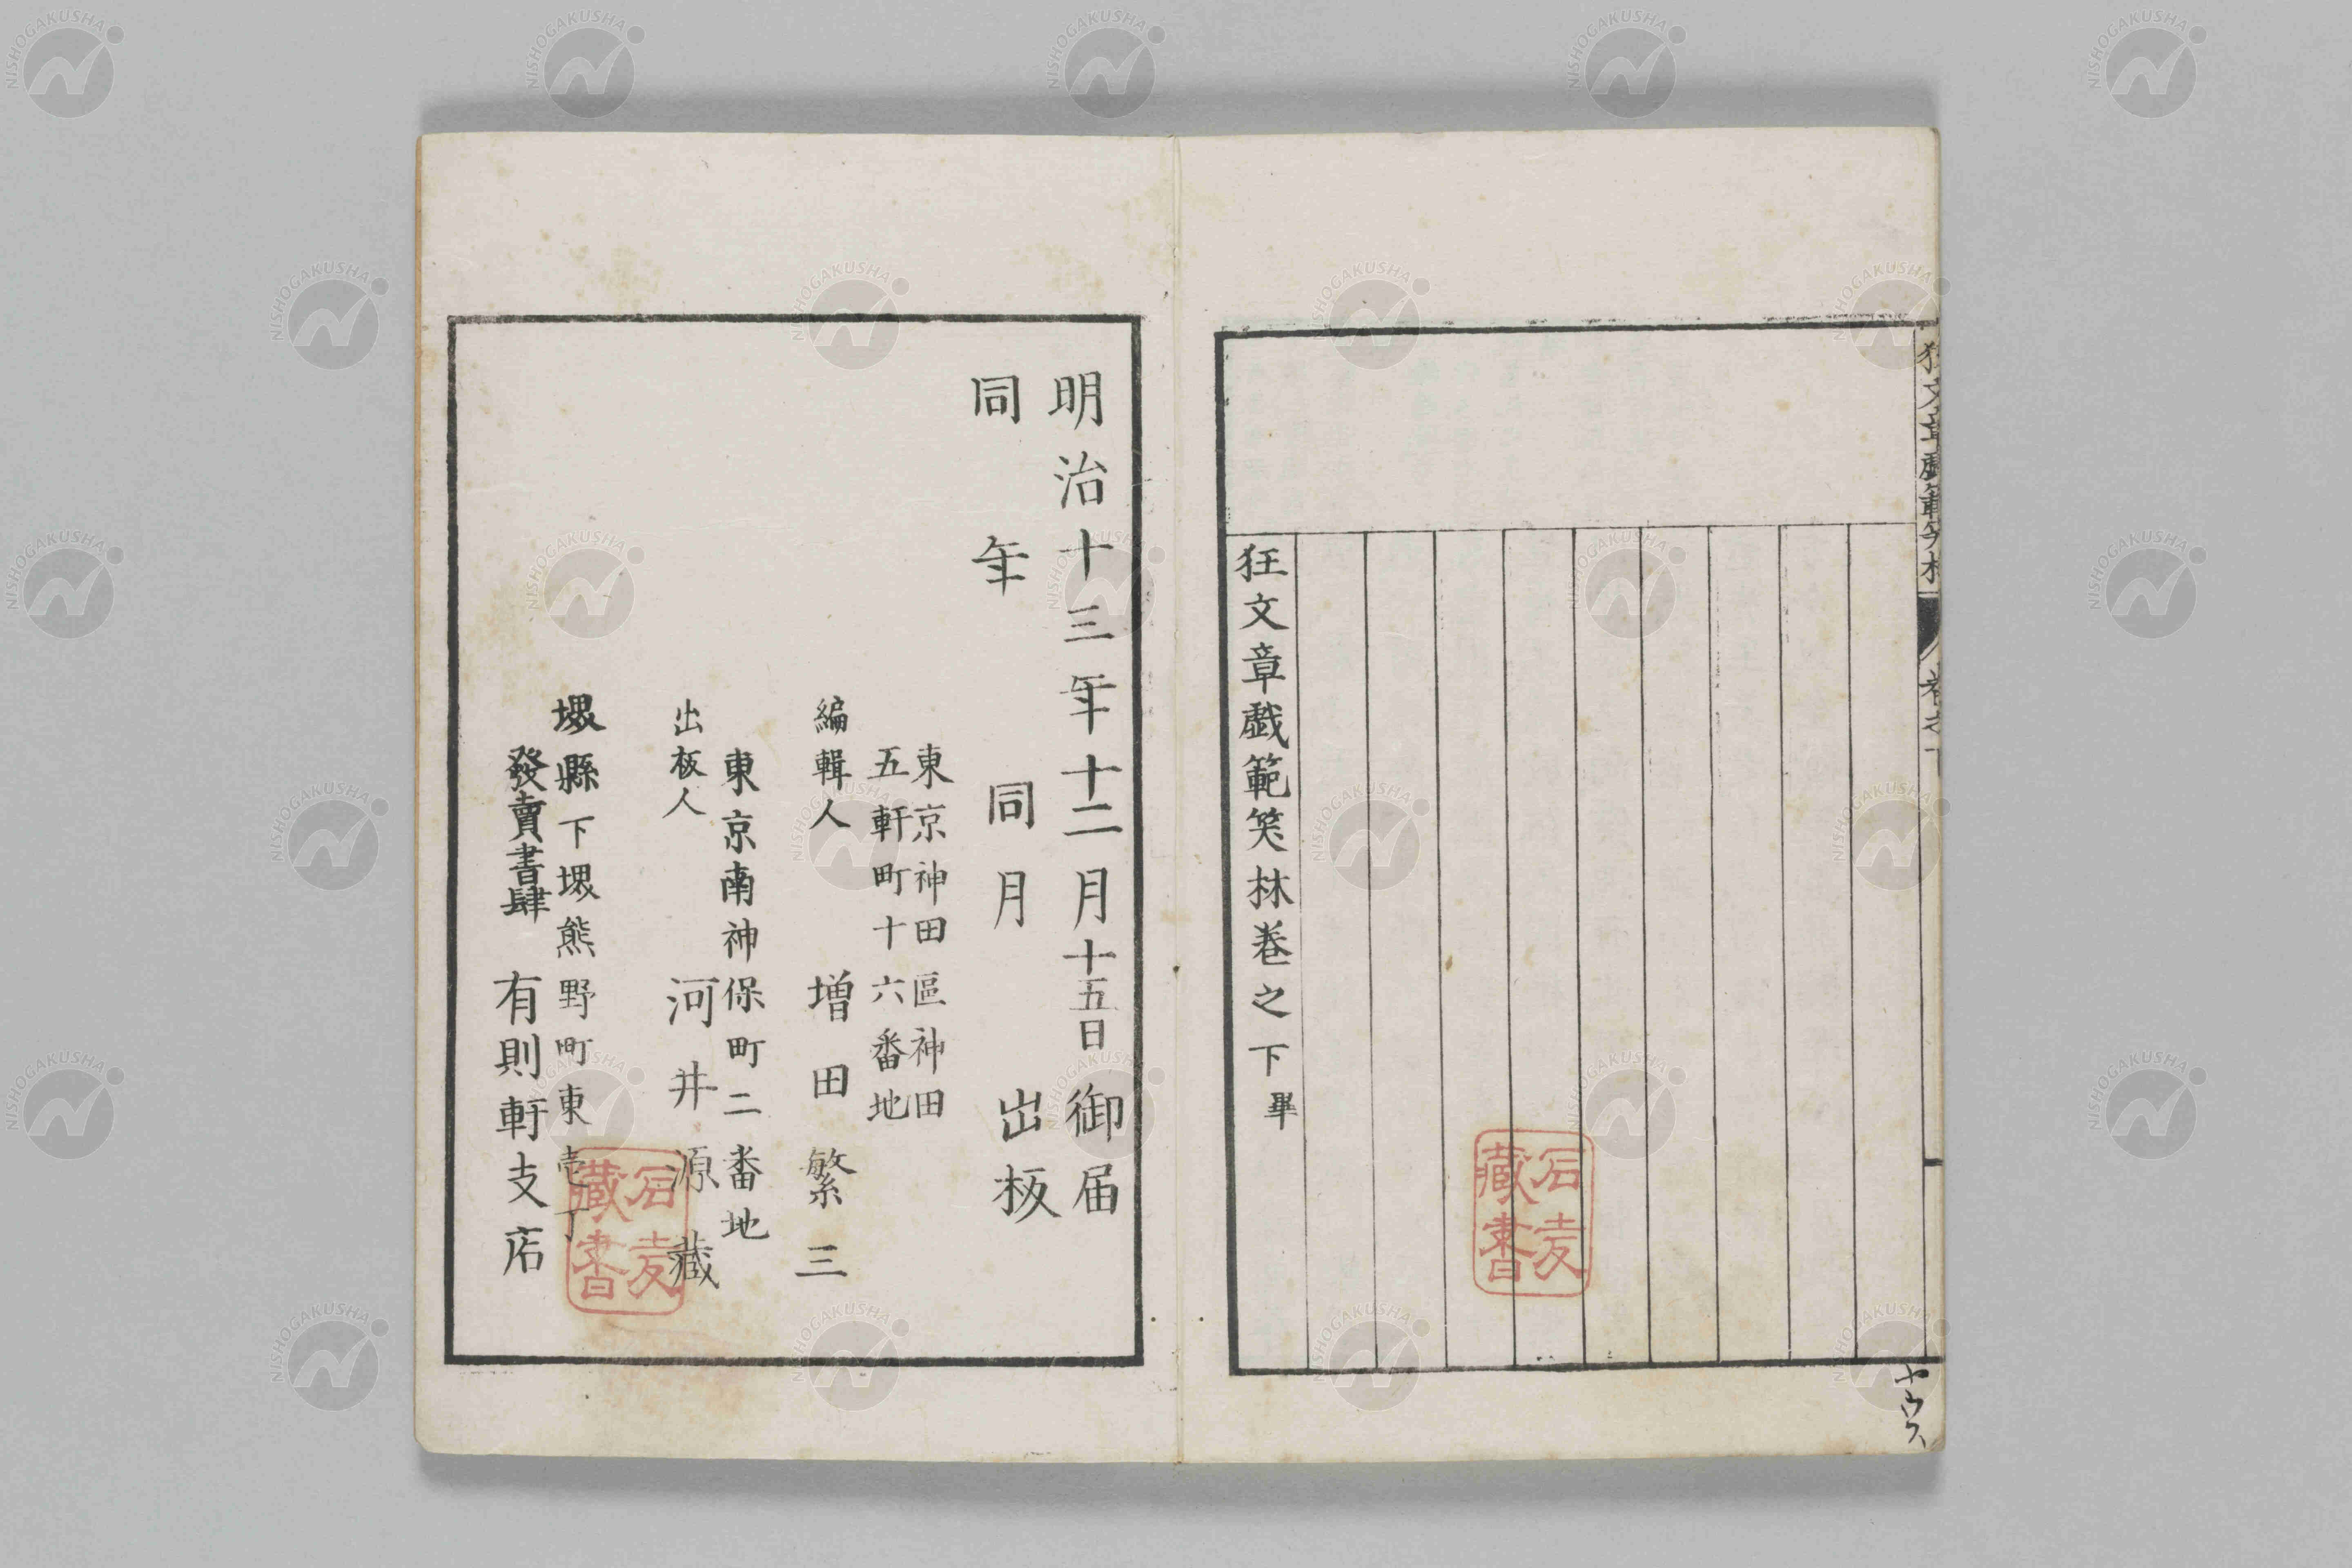 狂文章戯範笑林
巻之下
狂文章戯範笑林巻之下畢
明治十三年十二月十五日御届
同年同月出板
東京神田區神田
五軒町十六番地
編輯人 増田繁三
東京南神保町二番地
出板人 河井源藏
堺縣下堺熊野町東壱丁
發賣書肆 有則軒支店
藏書
藏書
NISHOGAKUSHA